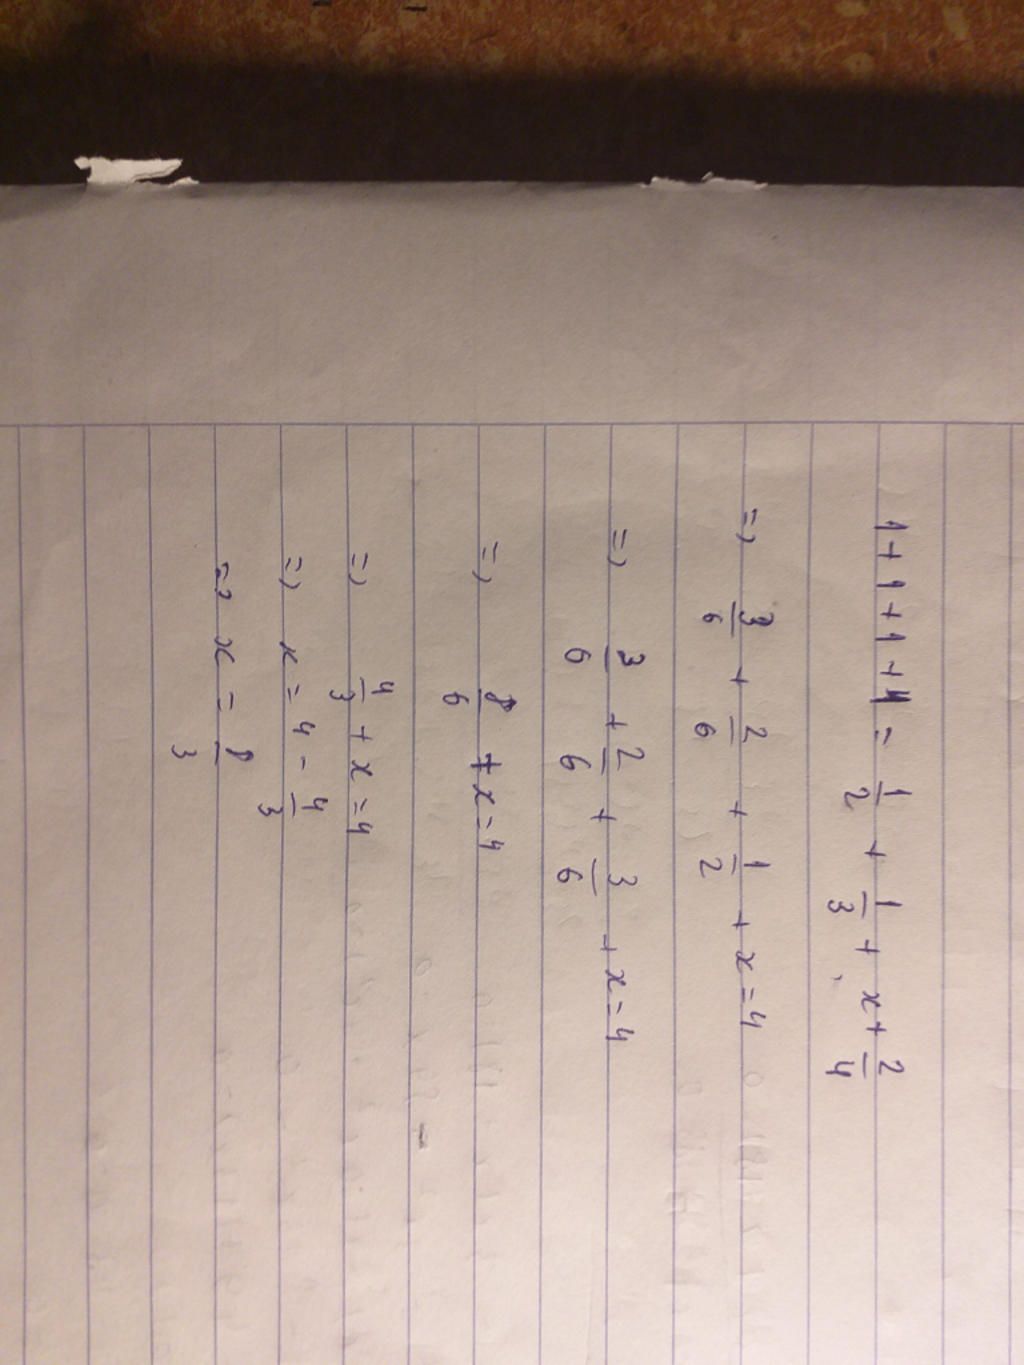 1 + 1 + 1 + 1 = 1/2 + 1/3 + x + 2/4
=> 3/6 + 2/6 + 1/2 + x = 4
=> 3/6 + 2/6 + 3/6 + x = 4
=> 8/6 + x = 4
=> 4/3 + x = 4
=> x = 4 - 4/3
=> x = 8/3